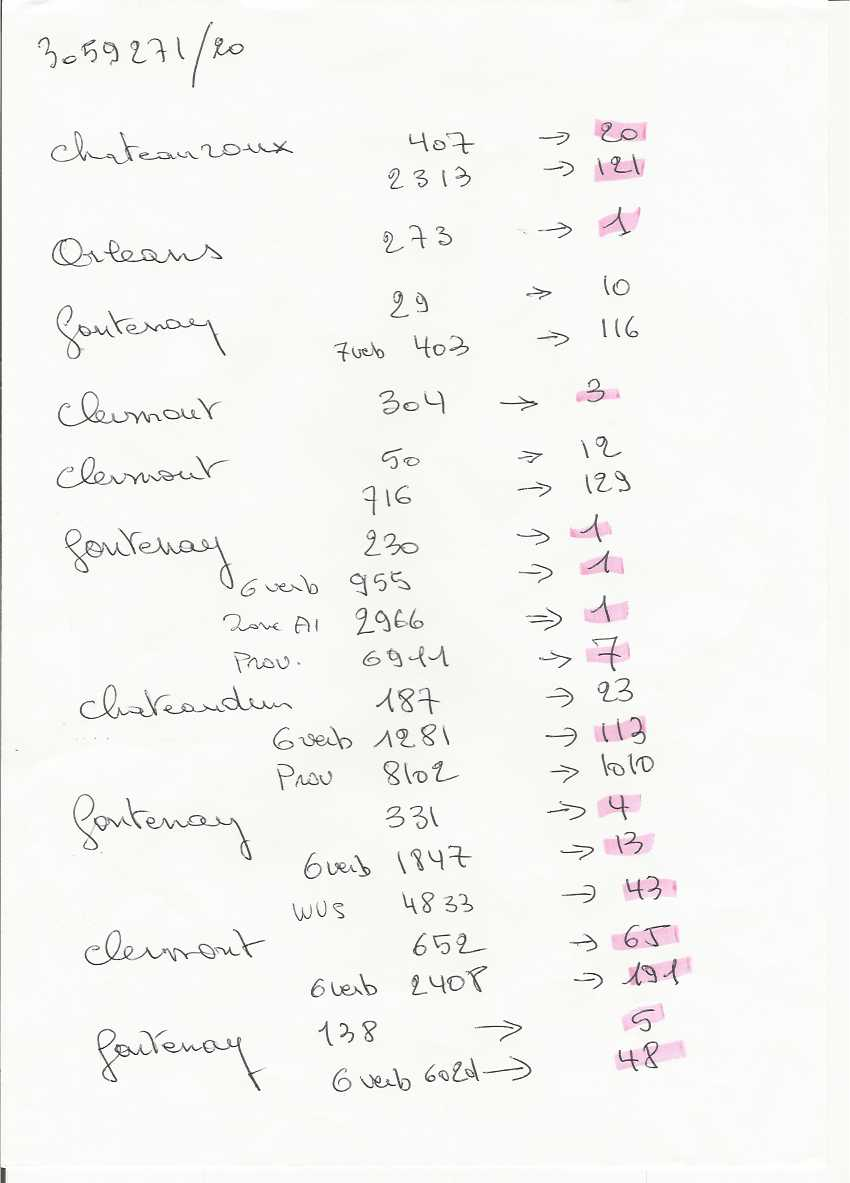 3059271/20
Chateauroux 407 → 20
2313 → 121
Orleans 273 → 1
fontenay 29 → 10
7verb 403 → 116
Clermont 304 → 3
Clermont 50 → 12
716 → 129
fontenay 230 → 1
6 verb 955 → 1
Zone A1 2966 → 1
Prov. 6911 → 7
Chateaudun 187 → 23
6 verb 1281 → 113
Prov 8102 → 1010
fontenay 331 → 4
6 verb 1847 → 13
WUS 4833 → 43
Clermont 652 → 65
6 verb 2408 → 191
fontenay 138 → 5
6 verb 602d → 48